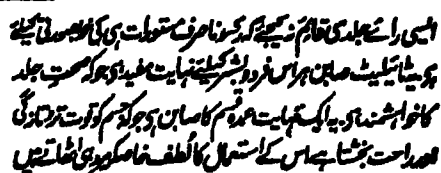 ایسی رائے جلدی قائم نہ کیجئے کہ کسونا صرف مستورات ہی کی خوبصورتی کیلئے
ہی بیٹا ٹیلیٹ صابن ہر اس فرد و بشر کیلئے نہایت مفید ہی جو کہ صحت جلد
کا خواہشمند ہو یہ ایک نہایت عمدہ قسم کا صابن ہی جو کہ جسم کو قوت تر و تازگی
اور راحت بخشتا ہے اس کے استعمال کا لطف خاصکر وہی اٹھاتے ہیں